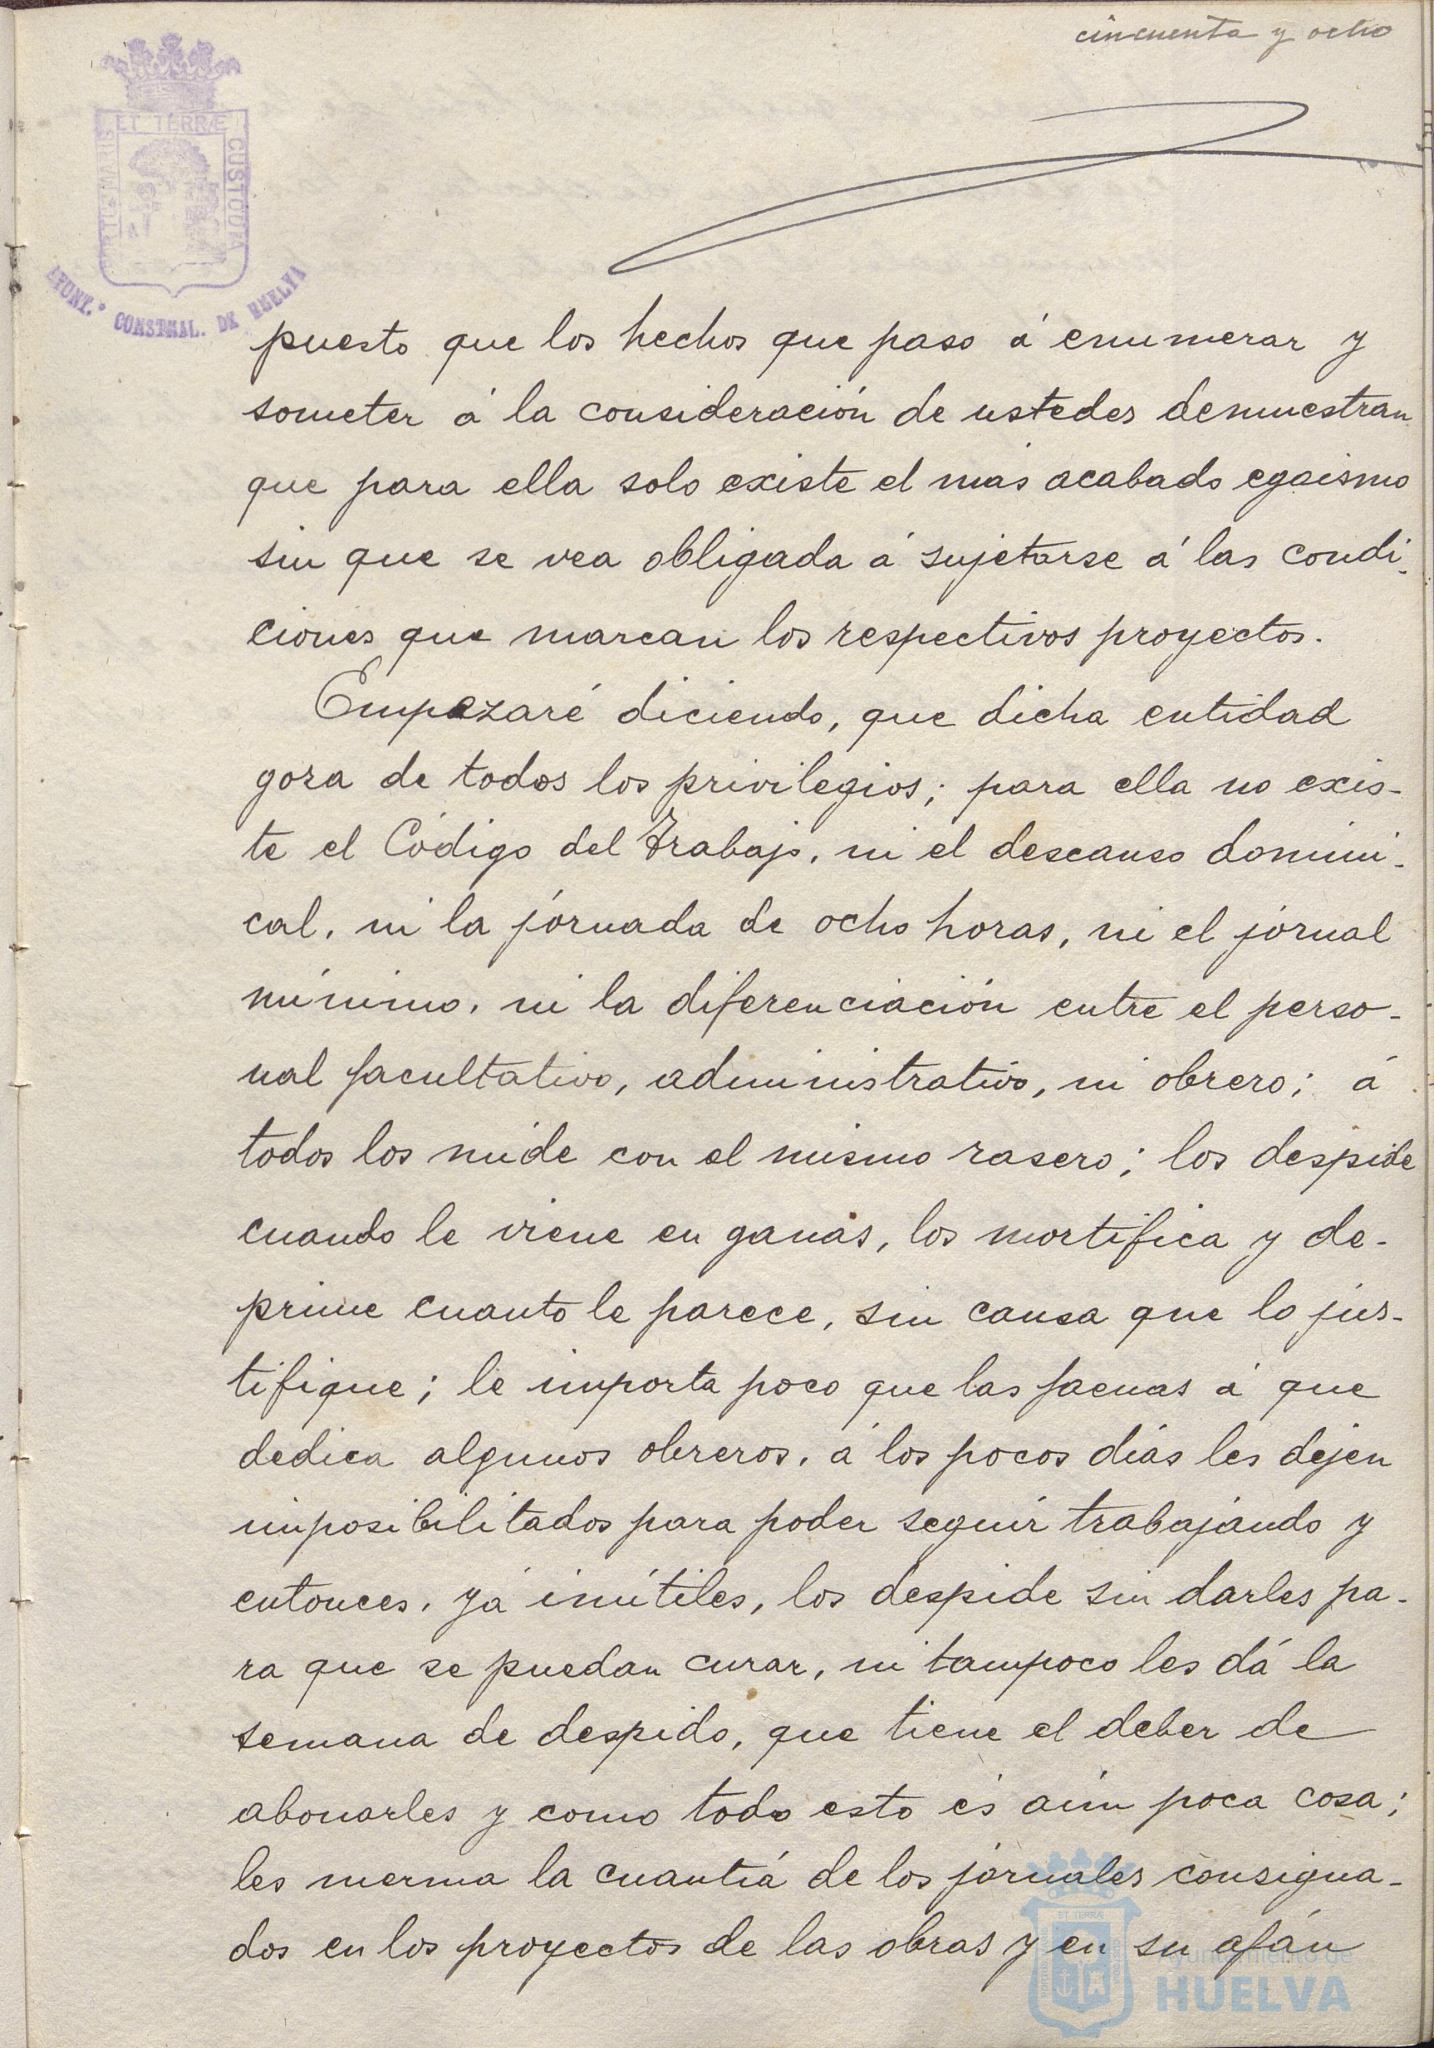 cincuenta y ocho
ET TERRÆ
CUSTODIA
AYUNT.º CONSTNAL. DE HUELVA
puesto que los hechos que paso á enumerar y
someter á la consideración de ustedes demuestran
que para ella solo existe el mas acabado egoismo
sin que se vea obligada á sujetarse á las condi-
ciones que marcan los respectivos proyectos.
Empezaré diciendo, que dicha entidad
goza de todos los privilegios; para ella no exis-
te el Código del Trabajo, ni el descanso domini-
cal, ni la jornada de ocho horas, ni el jornal
mínimo, ni la diferenciación entre el perso-
nal facultativo, administrativo, ni obrero; á
todos los mide con el mismo rasero; los despide
cuando le viene en ganas, los mortifica y de-
prime cuanto le parece, sin causa que lo jus-
tifique; le importa poco que las faenas á que
dedica algunos obreros, á los pocos dias les dejen
imposibilitados para poder seguir trabajando y
entonces, yá inútiles, los despide sin darles pa-
ra que se puedan curar, ni tampoco les dá la
semana de despido, que tiene el deber de
abonarles y como todo esto és aún poca cosa;
les merma la cuantiá de los jornales consigna-
dos en los proyectos de las obras y en su afán
Ayuntamiento de
HUELVA